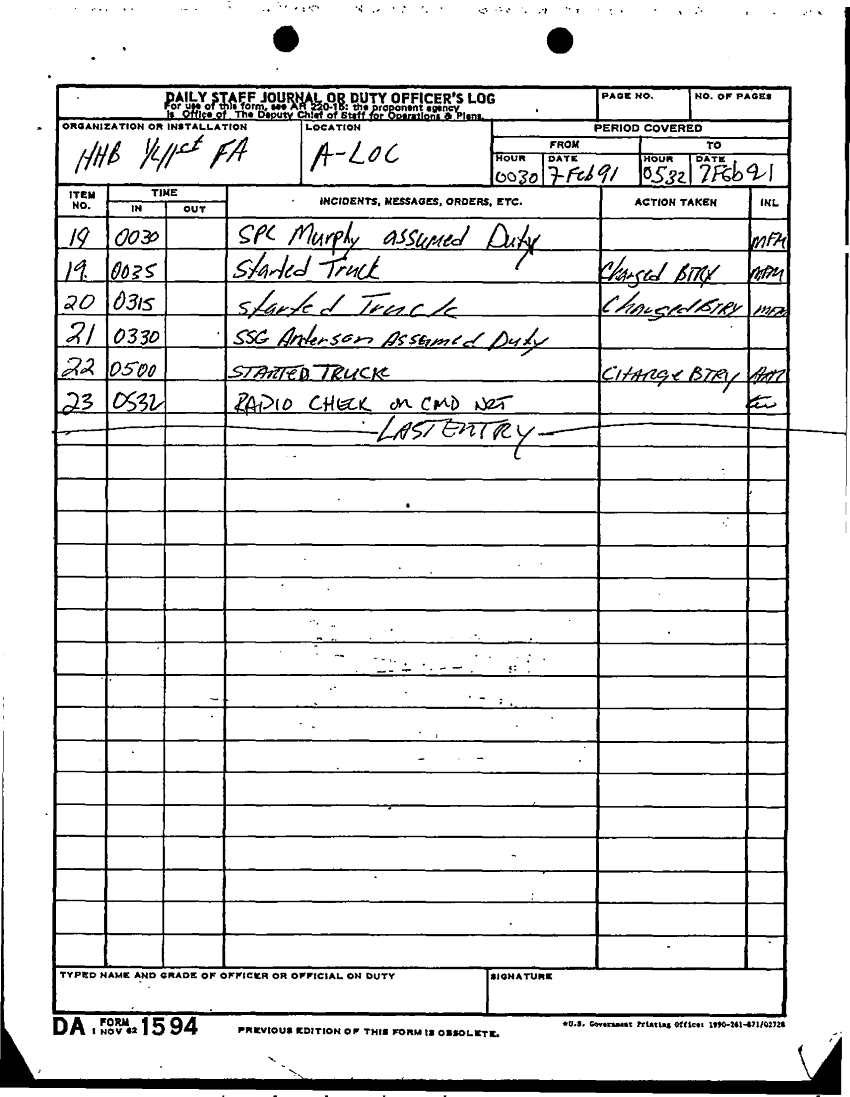 DAILY STAFF JOURNAL OR DUTY OFFICER'S LOG
For use of this form, see AR 220-15: the proponent agency
is Office of The Deputy Chief of Staff for Operations & Plans.
PAGE NO.
NO. OF PAGES
ORGANIZATION OR INSTALLATION
HHB FA
LOCATION
A-LOC
PERIOD COVERED
FROM
TO
HOUR DATE HOUR DATE
0030 7 Feb 91 0532 7 Feb 91
ITEM NO.
TIME
IN OUT
INCIDENTS, MESSAGES, ORDERS, ETC.
ACTION TAKEN
INL
19 0030 SPC Murphy assumed Duty MFM
19. 0035 Started Truck Charged BTRY MFM
20 0315 started Truck Charged BTRY MFM
21 0330 SSG Anderson Assumed Duty
22 0500 STARTED TRUCK CHARGE BTRY
23 0532 RADIO CHECK on CMD NET
LAST ENTRY
TYPED NAME AND GRADE OF OFFICER OR OFFICIAL ON DUTY
SIGNATURE
DA FORM 1594
1 NOV 62
PREVIOUS EDITION OF THIS FORM IS OBSOLETE.
*U.S. Government Printing Office: 1990-261-871/02728